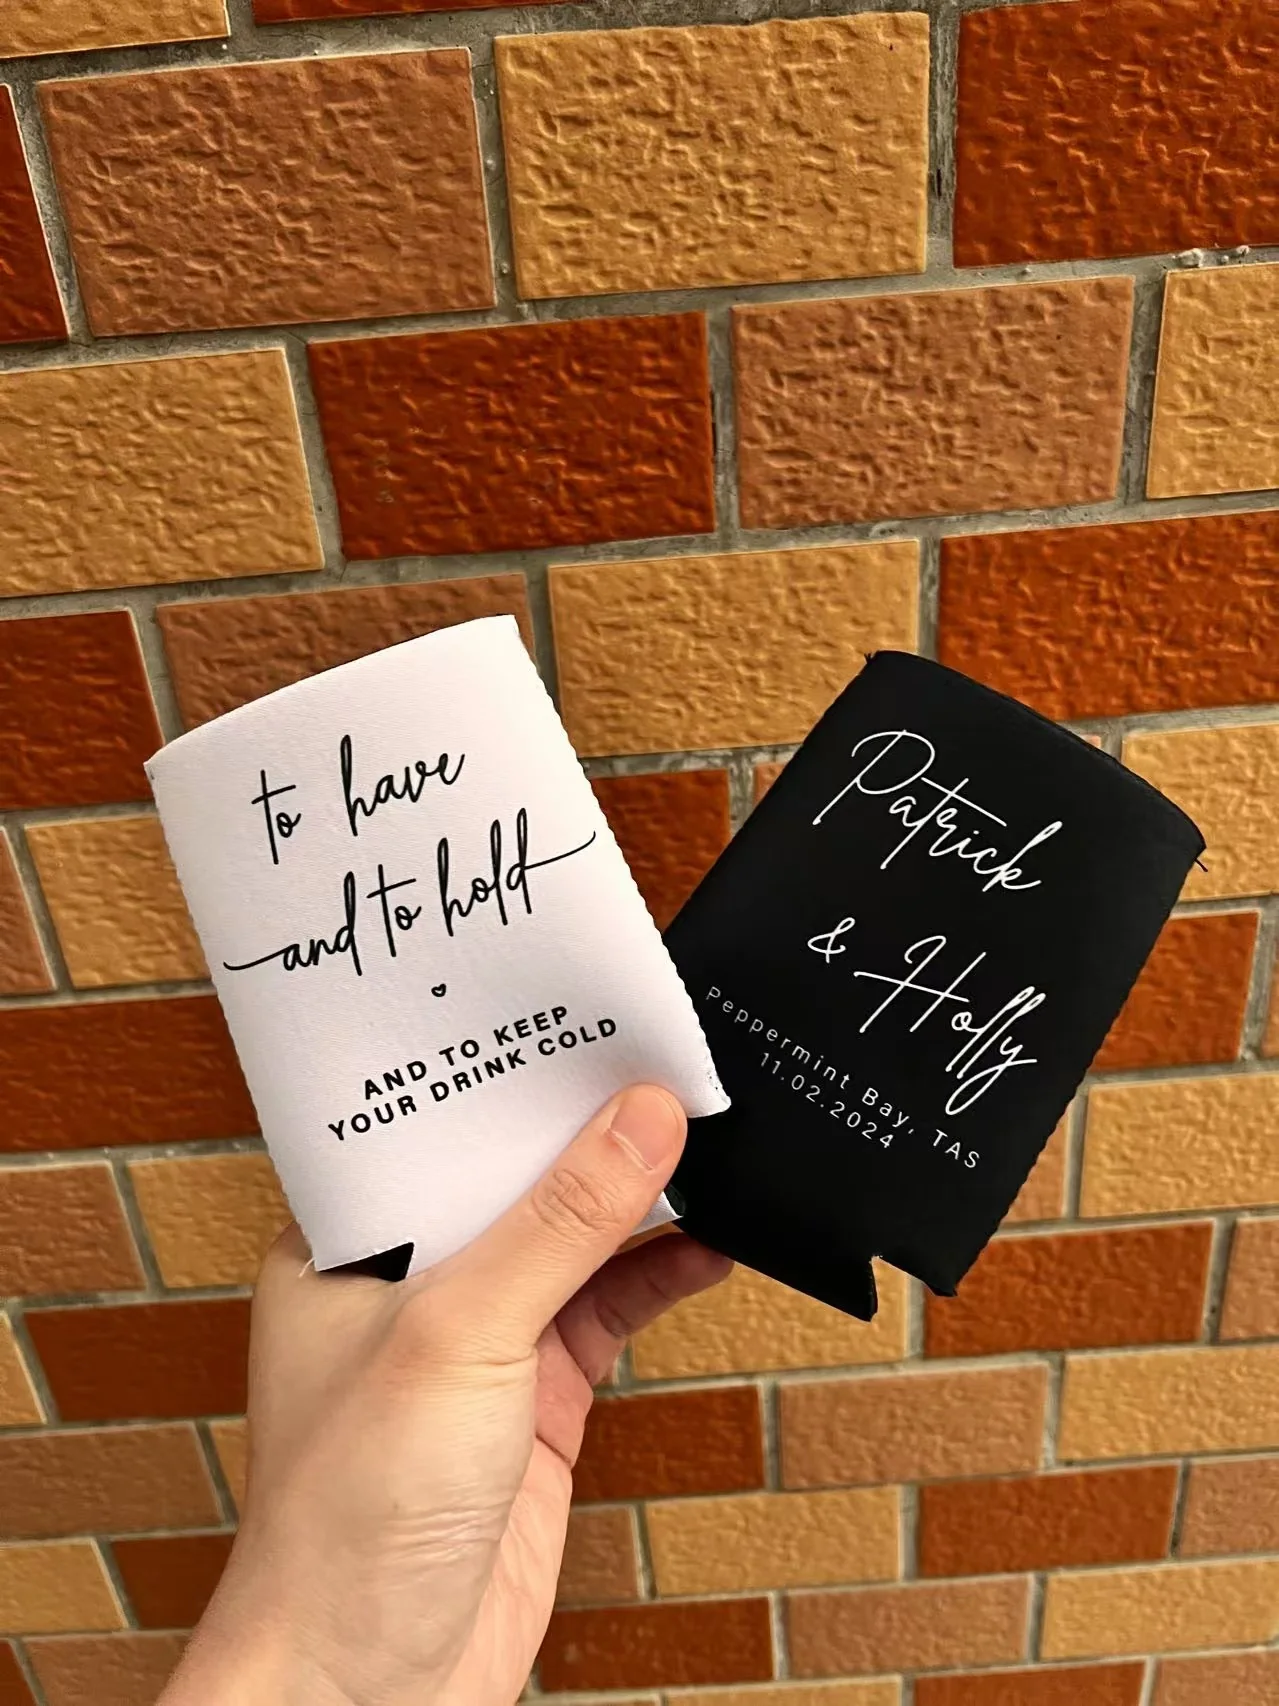 to have
and to hold
AND TO KEEP
YOUR DRINK COLD
Patrick
& Holly
Peppermint Bay, TAS
11.02.2024